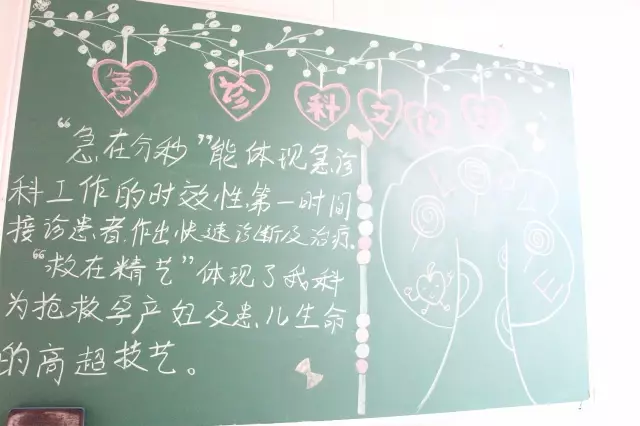 急诊科文化
"急在分秒"能体现急诊
科工作的时效性,第一时间
接诊患者,作出快速诊断及治疗。
"救在精艺"体现了我科
为抢救孕产妇及患儿生命
的高超技艺。
L O V E